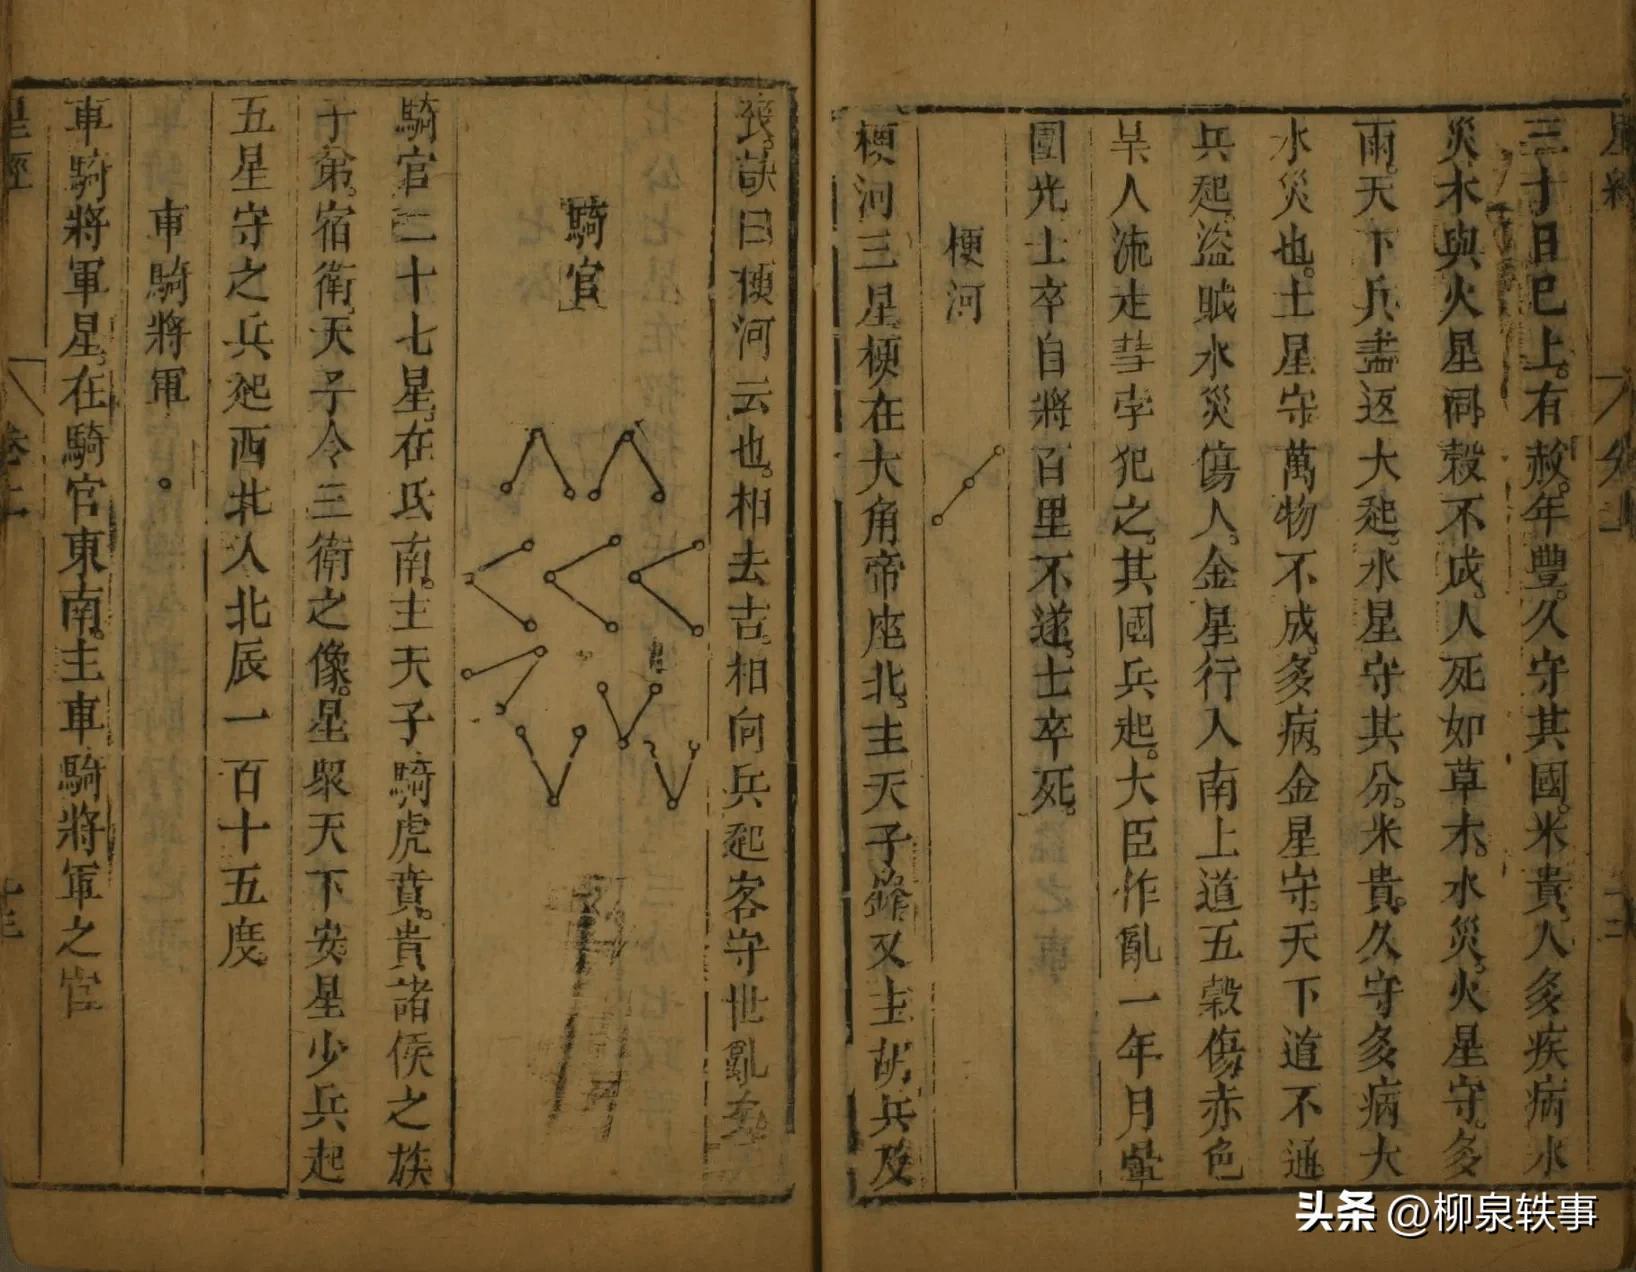 三十日已上。有赦。年豐。久守其國。米貴。人多疾病水
災。木與火星同。穀不成。人死如草木。水災。火星守。多
雨。天下兵盡返大起。水星守其分。米貴。久守多病大
水災也。土星守萬物不成。多病。金星守。天下道不通
兵起盜賊水災傷人。金星行入南上道五穀傷赤色
呆人流走彗孛犯之。其國兵起。大臣作亂一年月暈
圍光士卒自將百里不遂。士卒死。
梗河
梗河三星。梗在大角帝座北。主天子鋒又主胡兵及
喪。訣曰梗河云也。相去吉。相向兵起客守世亂
騎官
騎官二十七星。在氐南。主天子騎虎賁。貴諸侯之族
子弟。宿衛。天子令三衛之像。星眾天下安。星少兵起
五星守之兵起西北入北辰一百十五度
車騎將軍
車騎將軍星。在騎官東南。主車騎將軍之官
星經
卷上
头条 @柳泉轶事